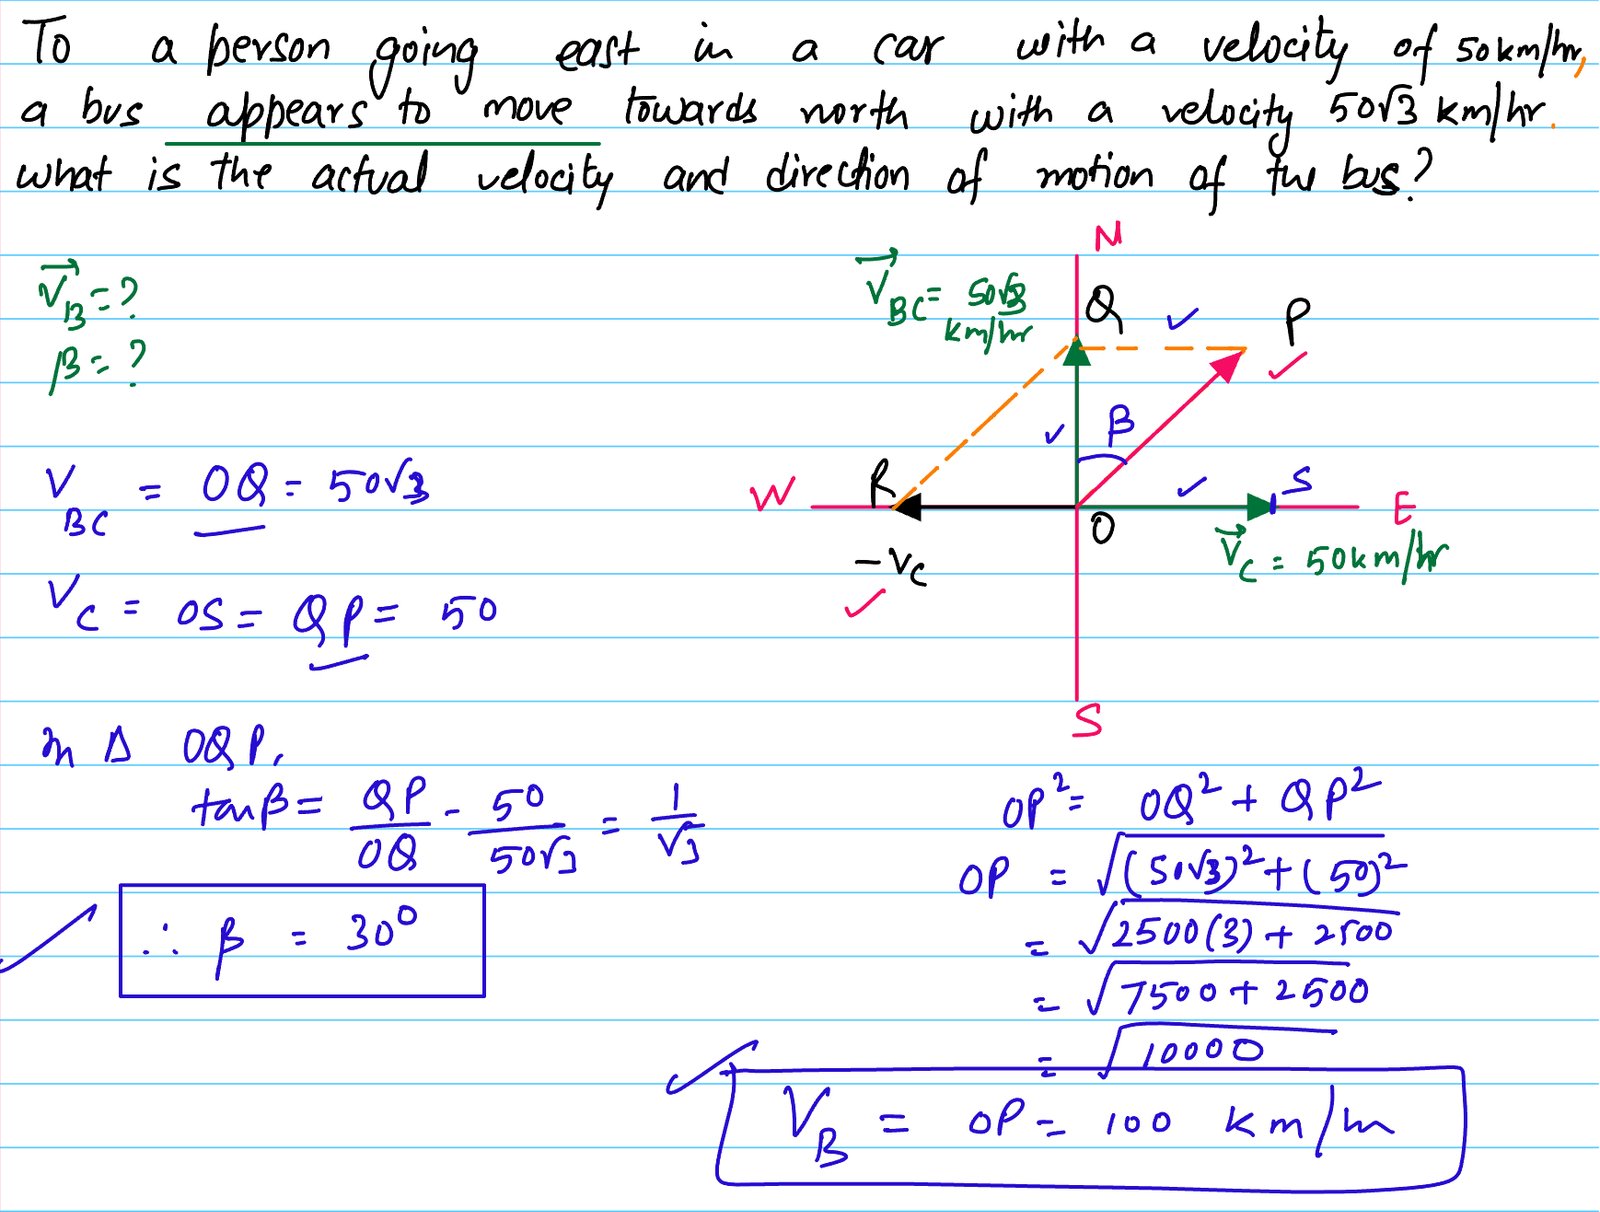 To a person going east in a car with a velocity of 50km/hr,
a bus appears to move towards north with a velocity 50√3 km/hr.
what is the actual velocity and direction of motion of the bus?
N
V⃗B = ?
V⃗BC = 50√3 km/hr
Q
P
β = ?
β
V BC = OQ = 50√3
W
R
O
S
E
-VC
V⃗C = 50km/hr
VC = OS = QP = 50
S
In Δ OQP,
tanβ = QP/OQ - 50/50√3 = 1/√3
∴ β = 30⁰
OP² = OQ² + QP²
OP = √(50√3)² + (50)²
= √2500(3) + 2500
= √7500 + 2500
= √10000
VB = OP = 100 km/hr